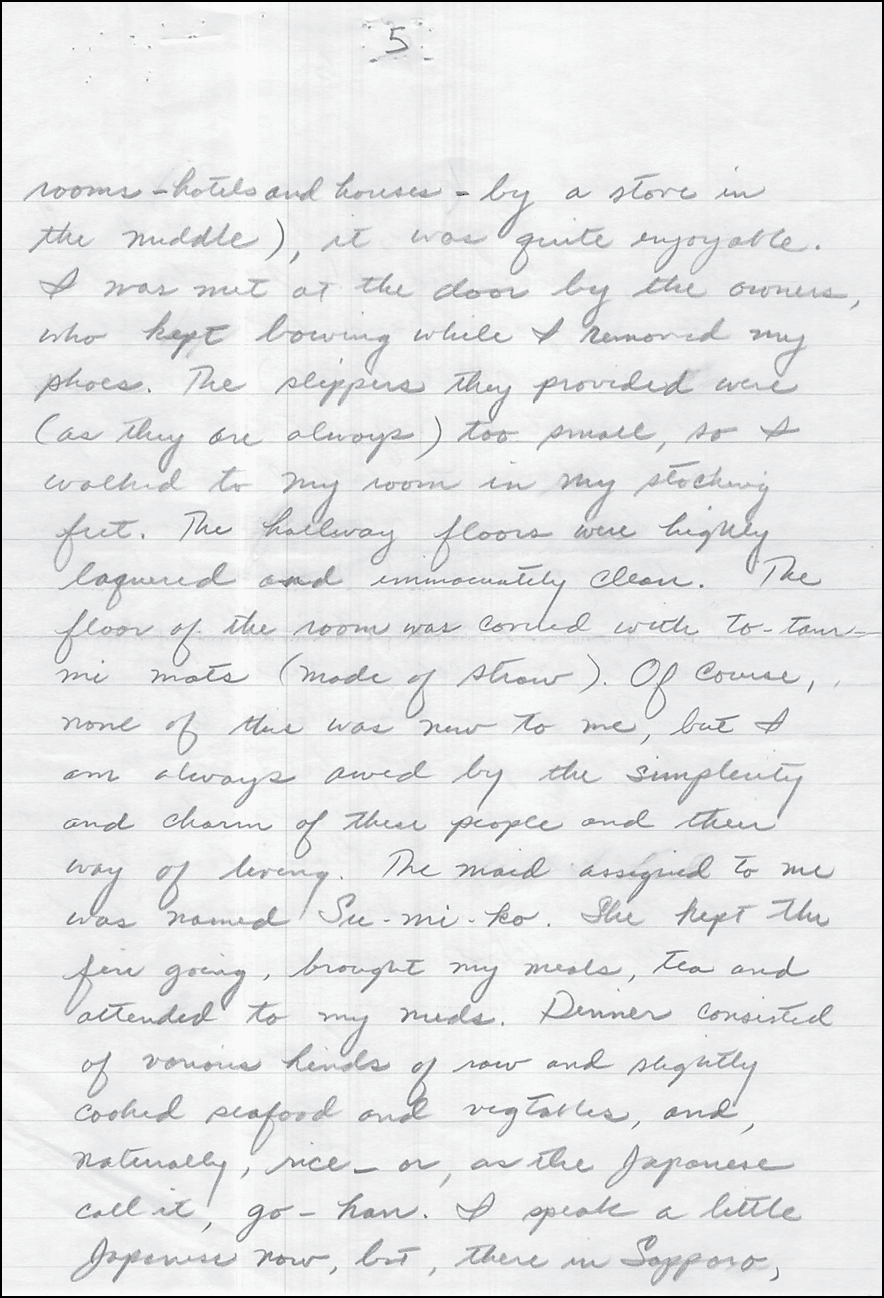 5
rooms - hotels and houses - by a stove in
the middle), it was quite enjoyable.
I was met at the door by the owners,
who kept bowing while I removed my
shoes. The slippers they provided were
(as they are always) too small, so I
walked to my room in my stocking
feet. The hallway floors were highly
laquered and immaculately clean. The
floor of the room was covered with to-tam-
mi mats (made of straw). Of course,
none of this was new to me, but I
am always awed by the simplicity
and charm of these people and their
way of living. The maid assigned to me
was named Su-mi-ko. She kept the
fire going, brought my meals, tea and
attended to my needs. Dinner consisted
of various kinds of raw and slightly
cooked seafood and vegtables, and,
naturally, rice - or, as the Japanese
call it, go-han. I speak a little
Japanese now, but, there in Sapporo,